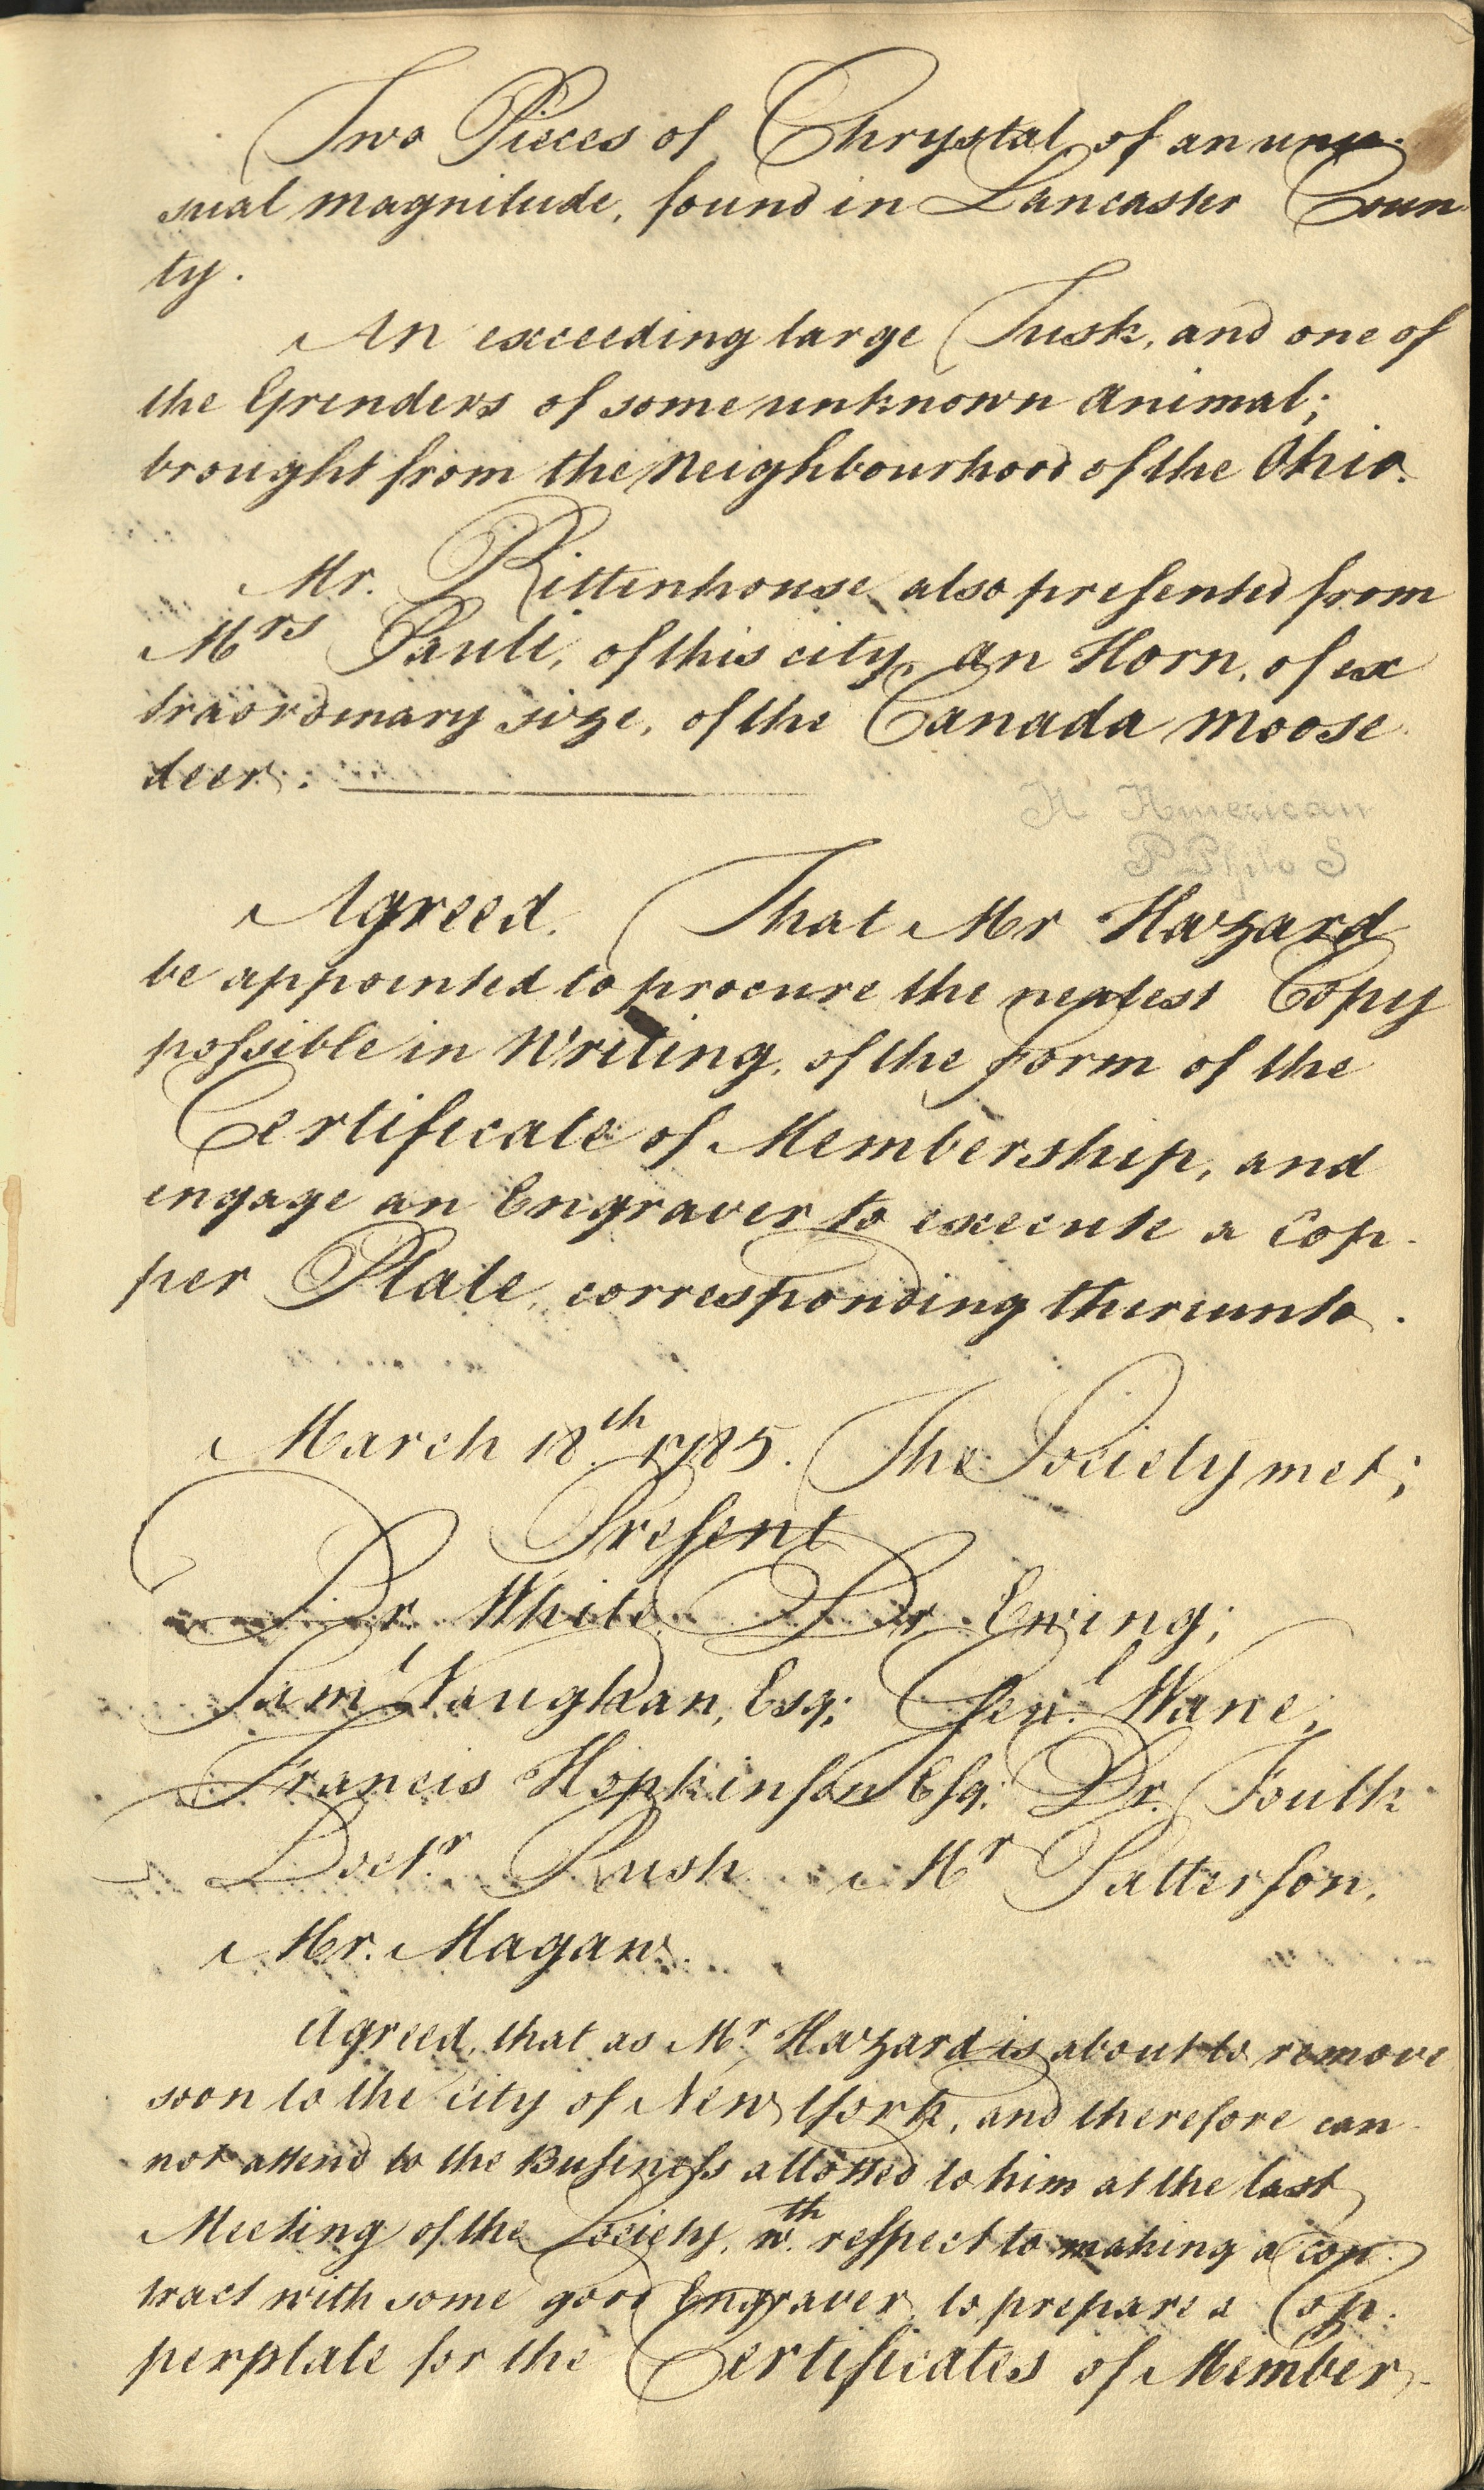 Two Pieces of Chrystal, of an unu-
sual magnitude, found in Lancaster Coun
ty.
An exceeding large Tusk, and one of
the Grinders of some unknown animal;
brought from the Neighbourhood of the Ohio.
Mr. Rittenhouse also presented from
Mrs Pauli, of this city, an Horn, of ex
traordinary size, of the Canada moose
deer.
A American
P Philo S
Agreed. That Mr Hazard
be appointed to procure the neatest Copy
possible in Writing, of the form of the
Certificate of Membership, and
engage an Engraver to execute a Cop-
per Plate, corresponding thereunto.
March 18.th 1785. The Society met;
Present
Dr. White, Dr. Ewing;
Saml Vaughan, Esq; Genl. Wane;
Francis Hopkinson Esq. Dr. Foulk
Doctr. Rush Mr Patterson.
Mr. Magaw.
Agreed, that as Mr. Hazard is about to remove
soon to the city of New York, and therefore can
not attend to the Business allotted to him at the last
Meeting of the Society, wth. respect to making a con-
tract with some good Engraver, to prepare a Cop-
perplate for the Certificates of Member-